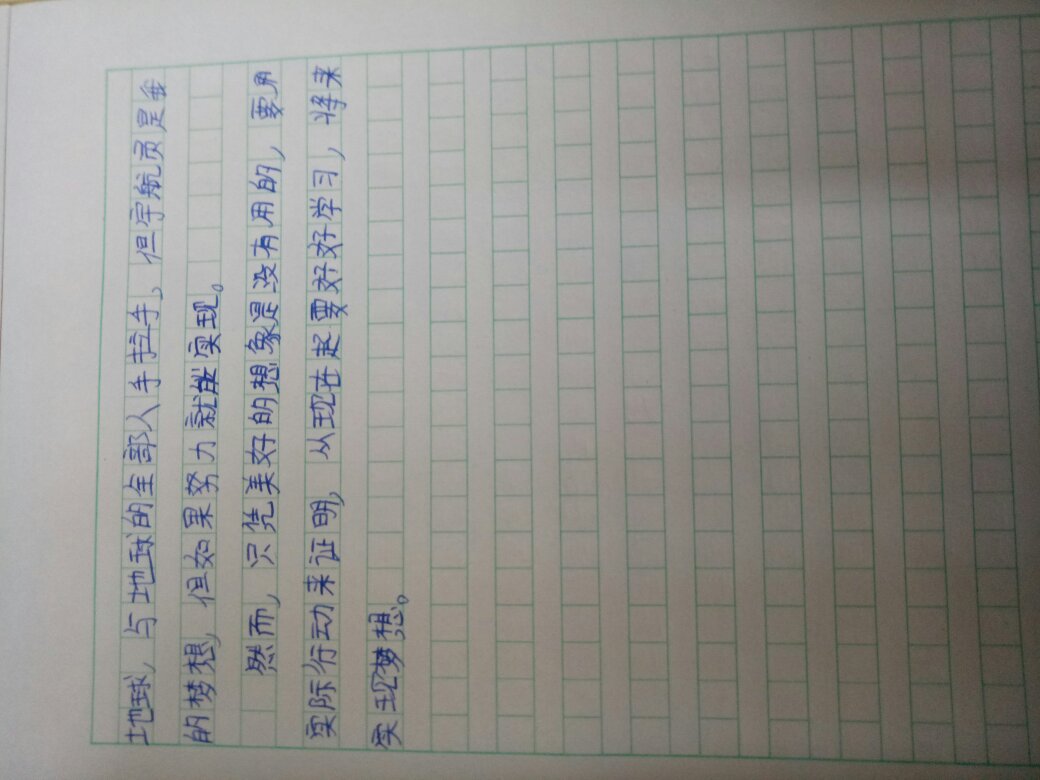 地球，与地球的全部人手拉手，但宇航员是我
的梦想，但如果努力就能实现。
然而，只凭美好的想象是没有用的，要用
实际行动来证明，从现在起要好好学习，将来
实现梦想。